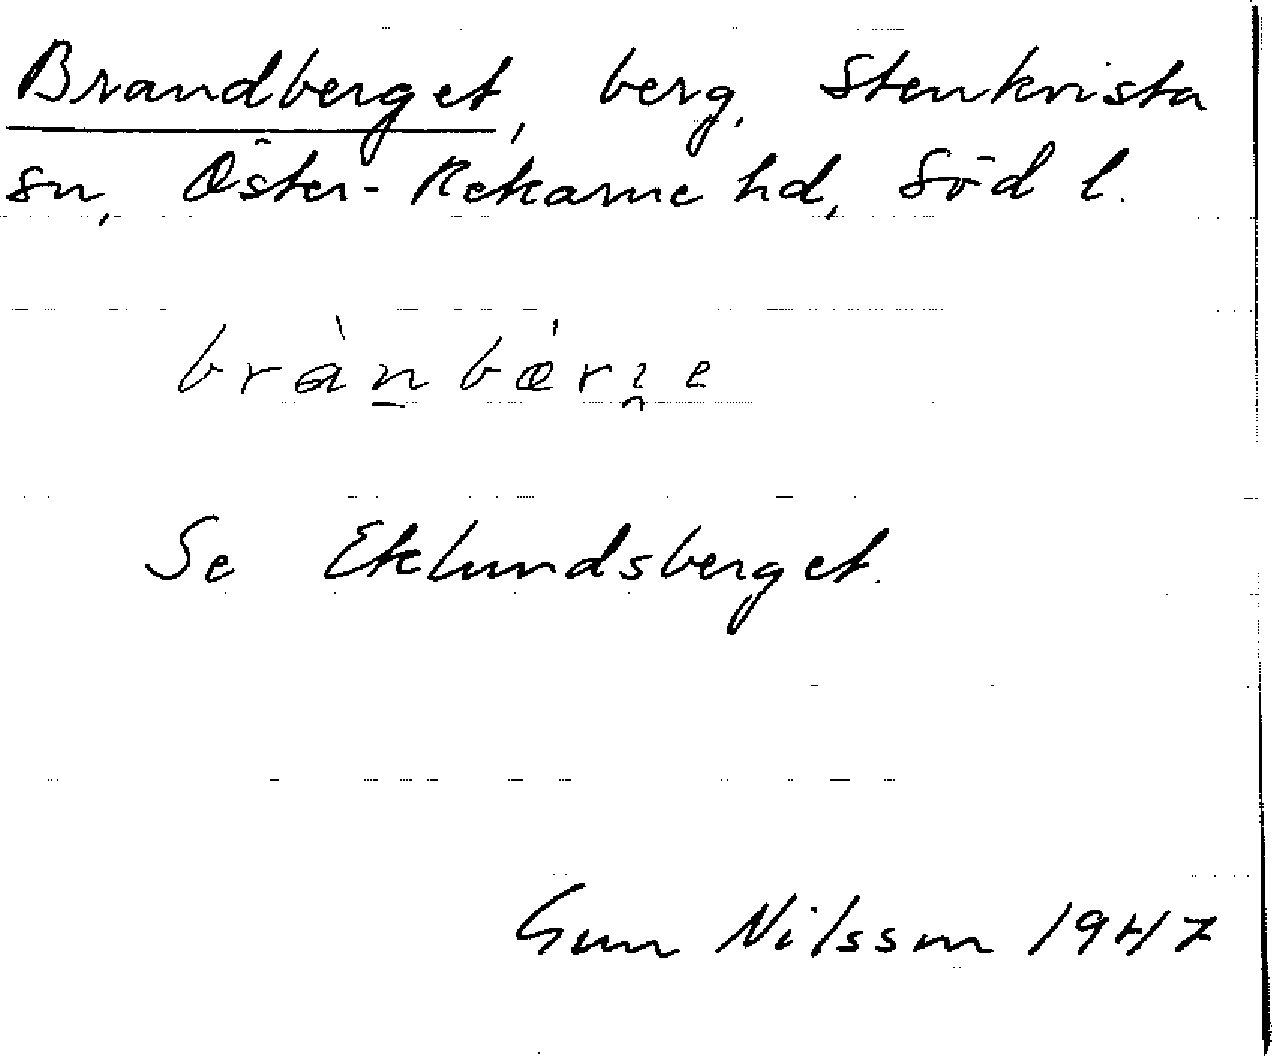 Brandberget, berg, Stenkvista
sn, Öster-Rekarne hd, Söd l.
Se Eklundsberget.
Gun Nilsson 1947